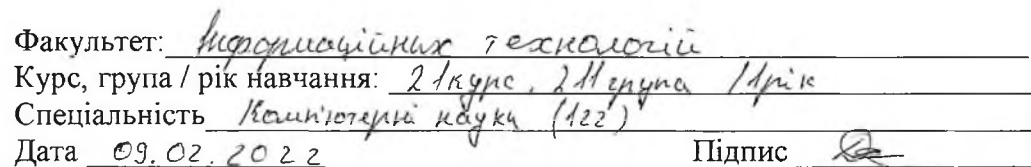 Факультет: Інформаційних технологій
Курс, група / рік навчання: 21курс, 211група /1рік
Спеціальність Компі'ютерні науки (122)
Дата 09.02.2022 Підпис